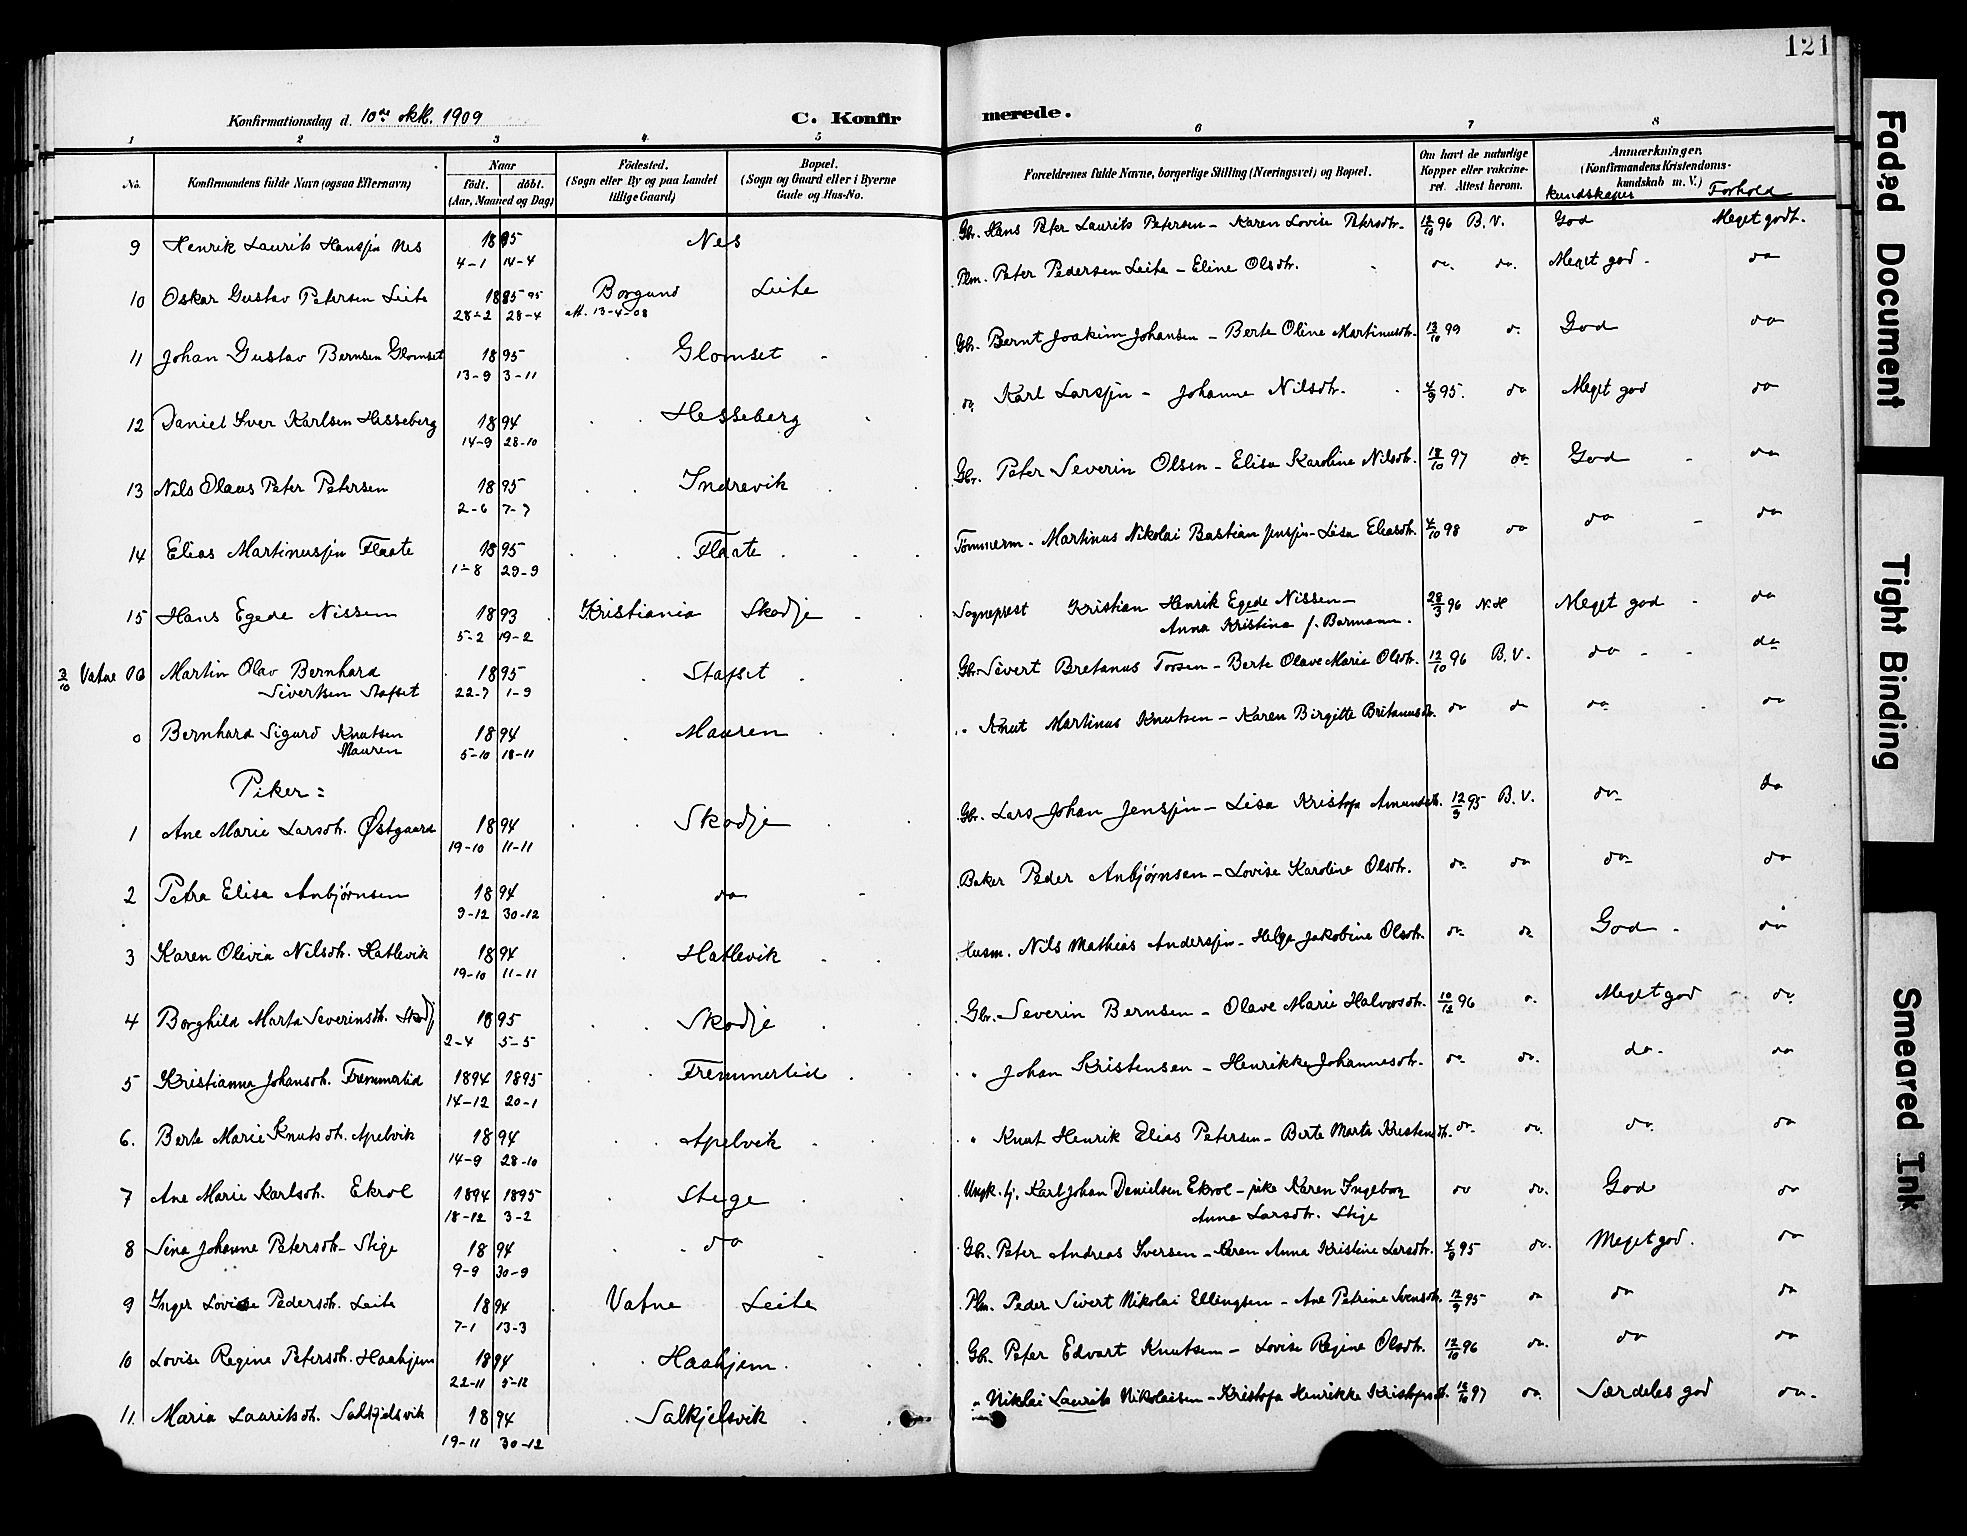 121
Konfirmationsdag d. 10de okt. 1909
C. Konfirmerede.
1 2 3 4 5 6 7 8
No. Konfirmandens fulde Navn (ogsaa Efternavn)
Naar født. døbt. (Aar, Maaned og Dag)
Fødested. (Sogn eller By og paa Landet tillige Gaard)
Bopæl. (Sogn og Gaard eller i Byerne Gade og Hus-No.
Forældrenes fulde Navne, borgerlige Stilling (Næringsvei) og Bopæl.
Om havt de naturlige Kopper eller vakcineret. Attest herom.
Anmærkninger. (Konfirmandens Kristendomskundskab m. V.)
Kundskaper Forhold
9 Henrik Laurits Hanssjn Nes 1895 4-1 14-4 Nes Gbr. Hans Peter Laurits Petersen - Karen Lovise Petersdtr. 12/10 96 B.V. God Meget godt.
10 Oskar Gustav Petersen Leite 1895 95 28-2 28-4 Borgund att. 13-4-08 Leite Plm. Peter Pedersen Leite - Eline Olsdtr. do. do. Meget god. do
11 Johan Gustav Bernsen Glomset 1895 13-9 3-11 Glomset Gbr. Bernt Joakim Johansen - Berte Oline Martinusdtr. 13/10 99 do God do
12 Daniel Iver Karlsen Hesseberg 1894 14-9 28-10 Hesseberg do Karl Larssjn - Johanne Nilsdtr. 4/9 95. do Meget god do
13 Nils Olaus Peter Petersen 1895 2-6 7-7 Indrevik Gbr. Peter Severin Olsen - Elisa Karoline Nilsdtr. 18/10 97 do God do
14 Elias Martinussjn Flaate 1895 1-8 29-9 Flaate Tømmerm. Martinus Nikolai Bastian Jenssjn - Lisa Eliasdtr. 4/10 98 do do do
15 Hans Egede Nissen 1893 5-2 19-2 Kristiania Skodje Sogneprest Kristian Henrik Egede Nissen -
Anna Kristina f. Bormann. 28/3 96 N.H Meget god do
3/10 Vatne 00 Martin Olav Bernhard
Sivertsen Stafset 1895 22-7 1-9 Stafset Gbr. Sivert Bretanus Torsen - Berte Olave Marie Olsdtr. 12/10 96 B.V. do do
0 Bernhard Sigurd Knutsen
Mauren 1894 5-10 18-11 Mauren " Knut Martinus Knutsen - Karen Birgitte Britanusdtr. do do do do
Piker =
1 Ane Marie Larsdtr. Østgaard 1894 19-10 11-11 Skodje Gbr. Lars Johan Jenssjn - Lisa Kristofa Amundsdtr. 12/9 95 B.V. do do
2 Petra Elisa Anbjørnsen 1894 9-12 30-12 do Baker Peder Anbjørnsen - Lovise Karoline Olsdtr. do do do do
3 Karen Olivia Nilsdtr. Hatlevik 1894 19-10 11-11 Hatlevik Husm. Nils Mathias Anderssjn - Helga Jakobine Olsdtr. do do God do
4 Borghild Marta Severinsdtr. Skodj 1895 2-4 5-5 Skodje Gbr. Severin Bernsen - Olave Marie Halvorsdtr. 10/12 96 do Meget god do
5 Kristianna Johansdtr. Fremmerlid 1894 1895 14-12 20-1 Fremmerlid " Johan Kristensen - Henrikke Johannesdtr. do do. do. do
6. Berte Marie Knutsdtr. Apelvik 1894 14-9 28-10 Apelvik " Knut Henrik Elias Petersen - Berte Marta Kristensdtr. do. do. do. do
7 Ane Marie Karlsdtr. Ekrol 1894 1895 18-12 3-2 Stige Ungk. tj. Karl Johan Danielsen Ekrol - pike Karen Ingeborg
Anna Larsdtr. Stige do do. God do
8 Sina Johanne Petersdtr. Stige 1894 9-9 30-9 do Gbr. Peter Andreas Iversen - Karen Anna Kristine Larsdtr. 4/9 95 do. Meget god. do
9 Inger Lovise Pedersdtr. Leite 1894 7-1 13-3 Vatne Leite Plm. Peder Sivert Nikolai Ellingsen - Ane Petrine Svensdtr. 12/9 95 do do do
10 Lovise Regine Petersdtr. Haahjem 1894 22-11 5-12 Haahjem Gbr. Peter Edvart Knutsen - Lovise Regine Olsdtr. 12/10 96 do. do do
11. Maria Lauritsdtr. Salkjelsvik 1894 19-11 30-12 Salkjelsvik " Niklai Laurits Nikolaisen - Kristofa Henrikke Kristofersd. 18/10 97 do. Særdeles god do.
Faded Document
Tight Binding
Smeared Ink